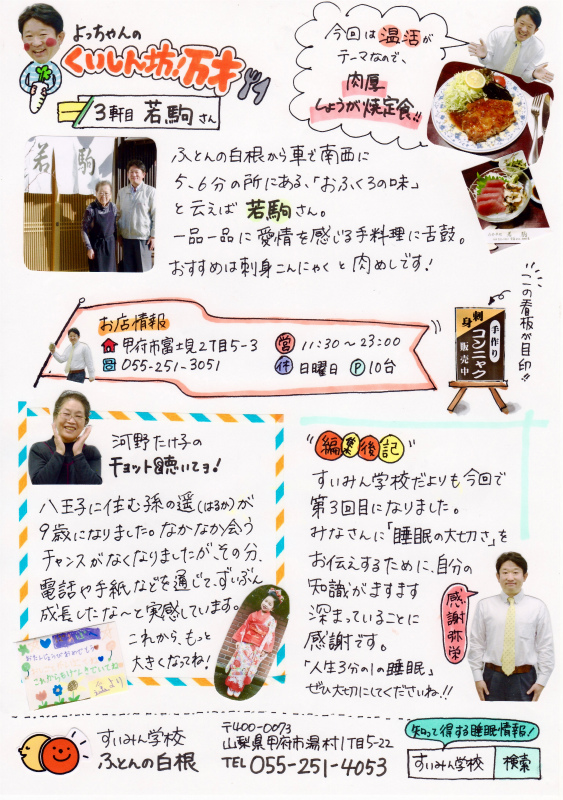 よっちゃんの
くいしん坊!万才
3軒目 若駒さん
今回は温活が
テーマなので、
肉厚
しょうが焼定食!!
若駒
ふとんの白根から車で南西に
5、6分の所にある、「おふくろの味」
と云えば 若駒さん。
一品一品に愛情を感じる手料理に舌鼓。
おすすめは刺身こんにゃくと肉めしです!
お店情報
甲府市富士見2丁目5-3
055-251-3051
営 11:30~23:00
休 日曜日 P 10台
この看板が目印!!
刺身
手作り
コンニャク
販売中
河野たけ子の
チョット聴いてョ!
八王子に住む孫の遥(はるか)が
9歳になりました。なかなか会う
チャンスがなくなりましたが、その分、
電話や手紙などを通じて、ずいぶん
成長したな~と実感しています。
これから、もっと
大きくなってね!
おたんじょうびおめでとう
これからもげんきでいてね
より
"編集後記"
すいみん学校だよりも今回で
第3回目になりました。
みなさんに「睡眠の大切さ」を
お伝えするために、自分の
知識がますます
深まっていることに
感謝です。
「人生3分の1の睡眠」
ぜひ大切にしてくださいね!!
感謝弥栄
すいみん学校
ふとんの白根
〒400-0073
山梨県甲府市湯村1丁目5-22
TEL 055-251-4053
知って得する睡眠情報!
すいみん学校 検索